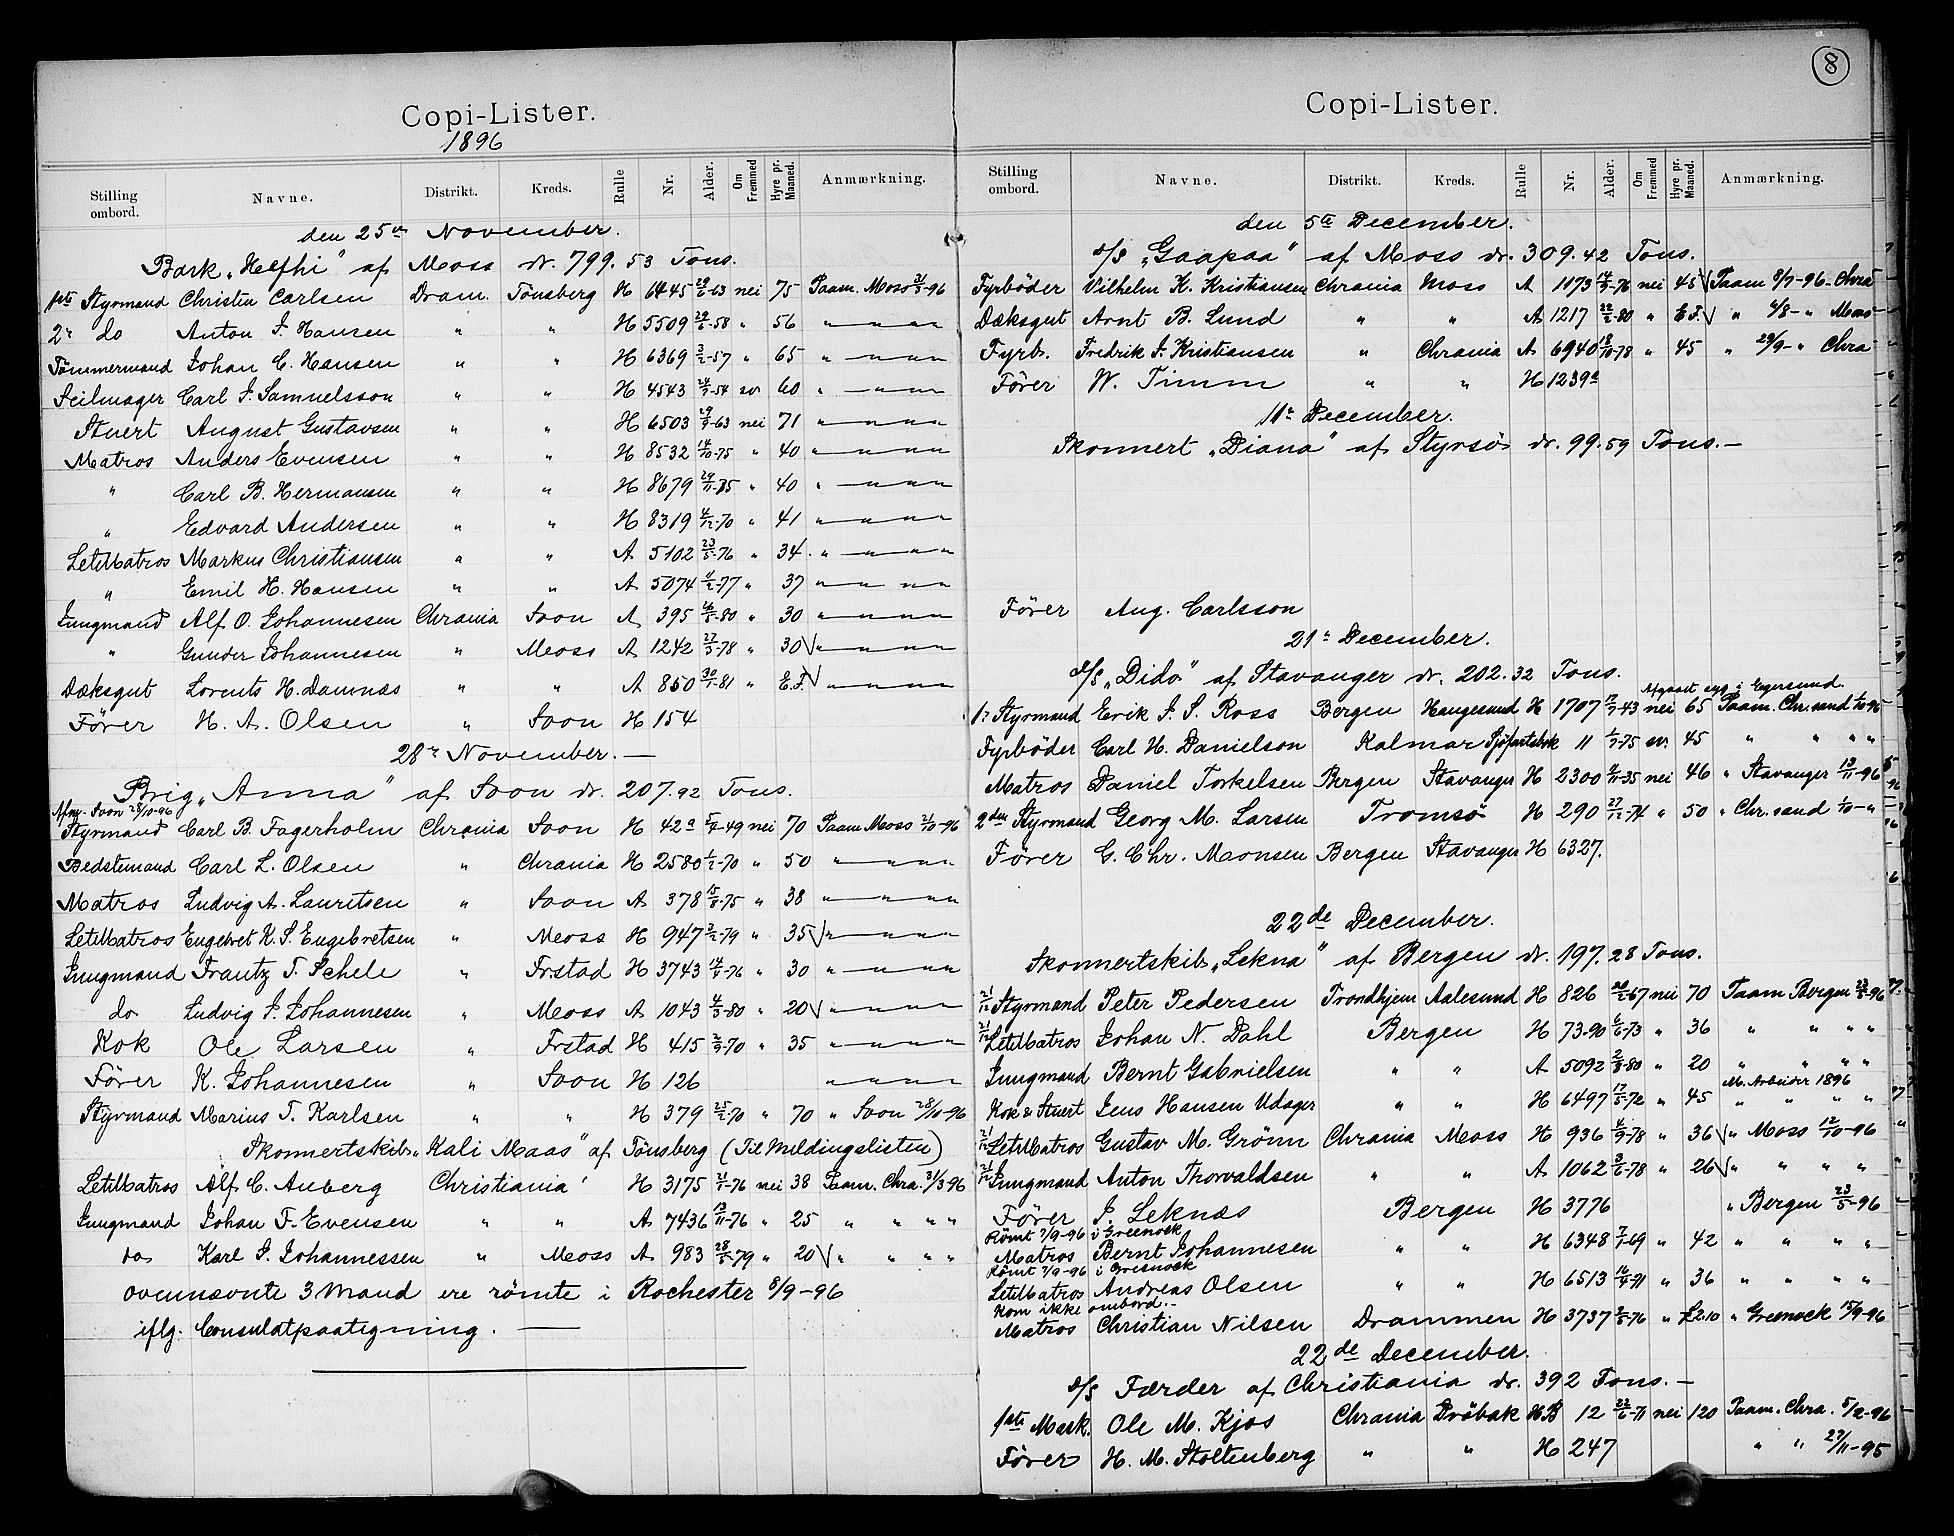 Copi-Lister.
1896
Stilling ombord. Navne. Distrikt. Kreds. Rulle Nr. Alder. Om Fremmed Hyre pr. Maaned. Anmærkning.
den 25de November.
Bark „Hefhi" af Moss dr. 799.53 Tons.
1ste Styrmand Christen Carlsen Dram. Tönsberg H 1445 29/6-63 nei 75 Paam. Moss 21/3-96
2n do Anton J. Hansen " " H 5509 29/6-58 " 56 " " " "
Tömmermand Johan C. Hansen " " H 6369 3/2-57 " 65 " " " "
Seilmager Carl J. Samuelsson " " H 4543 24/9-54 sv. 60 " " " "
Stuert August Gustavsen " " H 6503 29/9-63 nei 71 " " " "
Matros Anders Evensen " " H 8532 14/10-75 " 40 " " " "
" Carl B. Hermansen " " H 8679 29/11-75 " 40 " " " "
" Edvard Andersen " " H 8319 4/12-70 " 41 " " " "
LetMatros Markus Christiansen " " A 5102 23/5-76 " 34 " " " "
" Emil H. Hansen " " A 5074 11/2-77 " 37 " " " "
Jungmand Alf O. Johannesen Chrania Soon A 395 16/8-80 " 30 " " " "
" Gunder Johannesen " Moss A 1242 27/3-78 " 30 √ " " " "
Dæksgut Lorents H. Damnæs " " A 850 30/1-81 " E.F. √ " " " "
Förer H. A. Olsen " Soon H 154
28de November. —
Brig „Anna" af Soon dr. 207.92 Tons.
Afm. Soon 28/10-96
Styrmand Carl B. Fagerholm Chrania Soon H 42a 5/4-49 nei 70 Paam Moss 21/10-96
Bedstemand Carl L. Olsen " Chrania H 2580 1/2-70 " 50 " " " "
Matros Ludvig A. Lauritsen " Soon A 378 15/8-75 " 38 " " " "
LetMatros Engebret K. S. Engebretsen " Moss H 947 3/2-79 " 35 √ " " " "
Jungmand Frantz T. Schele " Frstad H 3743 14/9-76 " 30 " " " "
do Ludvig J. Johannesen " Moss A 1043 4/3-80 " 20 √ " " " "
Kok Ole Larsen " Frstad H 415 2/9-70 " 35 " " " "
Förer K. Johannesen " Soon H 126 " " " "
Styrmand Marius T. Karlsen " " H 379 25/2-70 " 70 " Soon 28/10-96
Skonnertskib „Kali Maas" af Tönsberg (Til Meldingslisten)
LetMatros Alf C. Auberg Christiania H 3175 21/1-76 nei 38 Paam. Chra. 31/3-96
Jungmand Johan F. Evensen " " A 7436 13/11-76 " 25 " " " "
do Karl S. Johannessen " Moss A 983 28/5-79 " 20 √ " " " "
ovennævnte 3 Mand ere römte i Rochester 8/9-96
iflg. Consulatpaategning. —
8
Copi-Lister.
Stilling ombord. Navne. Distrikt. Kreds. Rulle Nr. Alder. Om Fremmed Hyre pr. Maaned. Anmærkning.
den 5te December.
s/s „Gaapaa" af Moss dr. 309.42 Tons.
Fyrböder Vilhelm K. Kristiansen Chrania Moss A 1173 14/9-76 nei 45 √ Paam 8/7-96 Chra
Dæksgut Arnt B. Lund " " A 1217 22/2-80 " E.F. √ " 4/8- " Moss
Fyrb. Fredrik J. Kristiansen " Chrania A 6940 18/10-78 " 45 " 29/9- " Chra
Förer W. Timm " " H 1239a
11te December.
Skonnert „Diana" af Styrsö dr. 99.59 Tons. —
Förer Aug. Carlsson
21de December.
s/s „Dido" af Stavanger dr. 202.32 Tons.
Afgaaet syg i Egersund.
1ste Styrmand Erik J. S. Ross Bergen Haugesund H 1707 12/7-43 nei 65 Paam. Chr.sand 1/10-96
Fyrböder Carl H. Danielson Kalmar Sjöfartsbok 11 1/7-75 sv. 45 " " " "
Matros Daniel Torkelsen Bergen Stavanger H 2300 4/11-35 nei 46 " Stavanger 13/11-96
2den Styrmand Georg M. Larsen Tromsö H 290 27/12-74 " 50 " Chr.sand 1/10- "
Förer G. Chr. Monsen Bergen Stavanger H 6327.
22de December.
Skonnertskib „Lekna" af Bergen dr. 197.28 Tons.
21/12 Styrmand Peter Pedersen Trondhjem Aalesund H 826 22/2-67 nei 70 Paam Bergen 23/5-96
21/12 LetMatros Johan N. Dahl Bergen H 7390 6/6-73 " 36 " " " "
Jungmand Bernt Gabrielsen " " A 5092 2/8-80 " 20 " " " "
M. Arbeider 1896
Kok & Stuert Jens Hansen Udager " " H 6497 17/5-72 " 45 " " " "
21/12 LetMatros Gustav M. Grönn Chrania Moss H 936 11/9-78 " 36 √ " Moss 12/10-96
21/12 Jungmand Anton Thorvaldsen " " A 1062 3/6-78 " 26 √ " " " "
Förer J. Leknæs Bergen H 3776 " Bergen 23/5-96
Römt 7/9-96 i Greenock
Matros Bernt Johannesen " " H 6348 7/1-69 " 42 " " " "
Römt 7/9-96 i Greenock
LetMatros Andreas Olsen " " H 6513 16/4-71 " 36 " " " "
Kom ikke ombord. -
Matros Christian Nilsen Drammen H 3737 2/5-76 " £2.10 " Greenock 15/9-96
22de December.
s/s Færder af Christiania dr. 392 Tons. —
1ste Mask. Ole M. Kjos Chrania Dröbak HB 12 22/6-71 nei 120 Paam. Chra. 5/2-96
Förer H. M. Stoltenberg " " H 247 " " 27/11-95